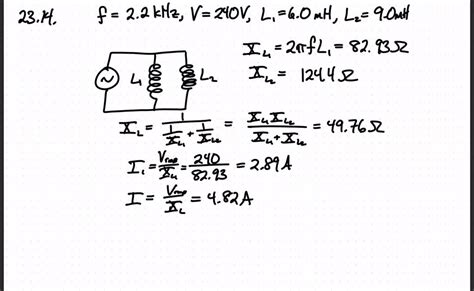 23.14. f = 2.2 kHz, V = 240V, L₁ = 6.0 mH, L₂ = 9.0 mH
X_L₁ = 2πfL₁ = 82.93Ω
X_L₂ = 124.4Ω
L₁ L₂
X_L = 1/(1/X_L₁ + 1/X_L₂) = X_L₁X_L₂/(X_L₁ + X_L₂) = 49.76Ω
I₁ = V_rms/X_L₁ = 240/82.93 = 2.89A
I = V_rms/X_L = 4.82A